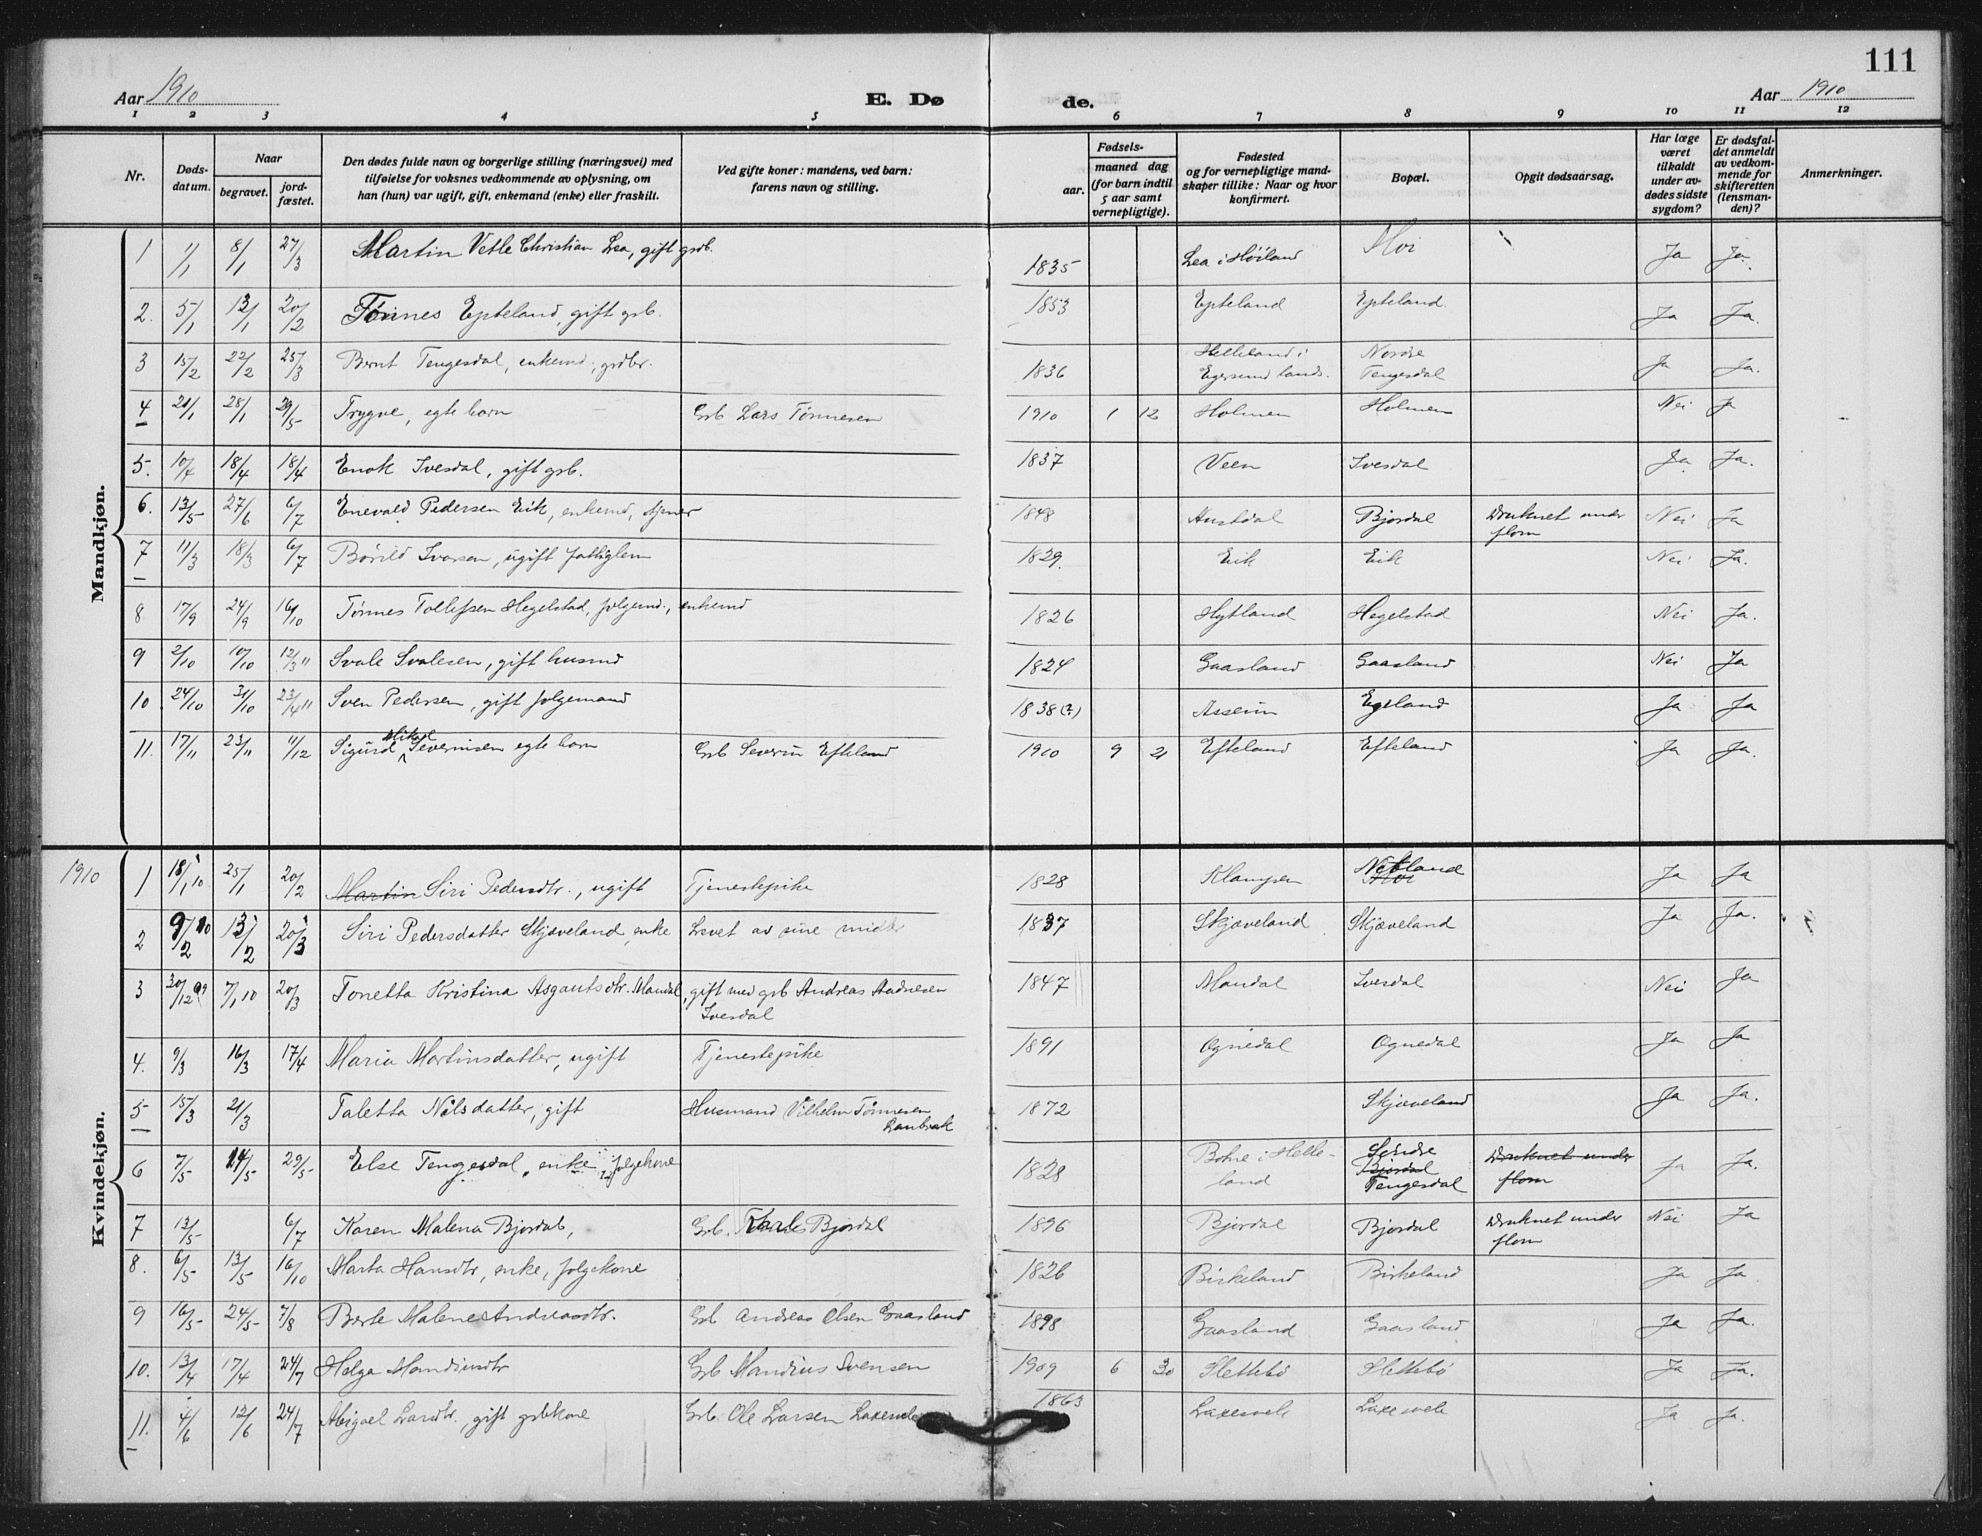 111
Aar 1910
E. Dø de.
Aar 1910
1 2 3 4 5 6 7 8 9 10 11 12
Nr.
Døds-
datum.
Naar
begravet.
jord-
fæstet.
Den dødes fulde navn og borgerlige stilling (næringsvei) med
tilføielse for voksnes vedkommende av oplysning, om
han (hun) var ugift, gift, enkemand (enke) eller fraskilt.
Ved gifte koner: mandens, ved barn:
farens navn og stilling.
Fødsels-
aar.
maaned dag
(for barn indtil
5 aar samt
vernepligtige).
Fødested
og for vernepligtige mand-
skaper tillike: Naar og hvor
konfirmert.
Bopæl.
Opgit dødsaarsag.
Har læge
været
tilkaldt
under av-
dødes sidste
sygdom?
Er dødsfal-
det anmeldt
av vedkom-
mende for
skifteretten
(lensman-
den)?
Anmerkninger.
Mandkjøn.
1 1/1 8/1 27/3 Martin Vetle Christian Lea, gift grdb. 1835 Lea i Høiland Moi Ja Ja.
2. 5/1 13/1 20/2 Tønnes Epteland, gift grb. 1853 Epteland Epteland. Ja Ja.
3 15/2 22/2 25/3 Bernt Tengesdal, enkemd., grdbr. 1836 Helleland i Egersund lands. Nordre Tengesdal Ja Ja.
4 21/1 28/1 29/5 Trygve, egte barn Grb Lars Tønnesen 1910 1 12 Holmen Holmen Nei Ja
5. 10/4 18/4 18/4 Enok Ivesdal, gift grb. 1837 Veen Ivesdal Ja. Ja.
6. 13/5 27/6 6/7 Enevald Pedersen Eik, enkemd, tjener 1848 Austdal Bjordal Druknet under flom Nei Ja
7 11/3 18/3 6/7 Børild Ivarsen, ugift fattiglem 1829. Eik Eik Nei Ja.
8. 17/9 24/9 16/10 Tønnes Tollefsen Hegelstad, folgemd., enkemd 1826 Hytland Hegelstad Nei Ja.
9 2/10 10/10 12/3 11 Svale Svalesen, gift husmd 1824 Gaasland Gaasland Nei Ja
10 24/10 31/10 23/4 11 Sven Pedersen, gift folgemand 1838 (?) Asseim Egeland Ja Ja
11. 17/11 23/11 11/12 Sigurd Mikal Severinsen egte barn Grb Severin Efteland 1910 9 21 Efteland Efteland Ja Ja.
1910
Kvindekjøn.
1 18/1 10 25/1 20/2 Martin Siri Pedersdtr., ugift Tjenestepike 1828 Klampen Netland Moi Ja Ja
2 9/2 10 13/2 20/3 Siri Pedersdatter Skjæveland, enke Levet av sine midler 1837 Skjæveland Skjæveland Ja Ja.
3 30/12 09 7/1 10 20/3 Tonetta Kristina Asgautsdtr. Mandal, gift med grb Andreas Aadnesen
Ivesdal 1847 Mandal Ivesdal Nei Ja
4. 9/3 16/3 17/4 Maria Martinsdatter, ugift Tjenestepike 1891 Ognedal Ognedal Ja Ja
5 15/3 21/3 Taletta Nilsdatter, gift Husmand Vilhelm Tønnesen
1872 Skjæveland Ja Ja.
6 7/5 14/5 29/5 Else Tengesdal, enke folgekone 1828 Bøhe i Helle-
land Søndre Bjordal Tengesdal Druknet under flom Ja Ja.
7 13/5 6/7 Karen Malena Bjordal, Grb. Bjordal 1896 Bjordal Bjordal Druknet under flom Nei Ja
8. 6/5 13/5 16/10 Marta Hansdtr, enke, folgekone 1826 Birkeland Birkeland Ja Ja
9 16/5 24/5 7/8 Berte Malene Andreasdtr. Grb Andreas Olsen Gaasland 1898 Gaasland Gaasland Ja Ja.
10. 13/4 17/4 24/7 Helga Mandiusdtr Grb Mandius Svensen 1909 6 30 Slettebø Slettebø Ja Ja.
11. 4/6 12/6 24/7 Abigael Larsdtr., gift grbkone Grb. Ole Larsen 1863 Laxesvele Laxesvele Ja Ja.